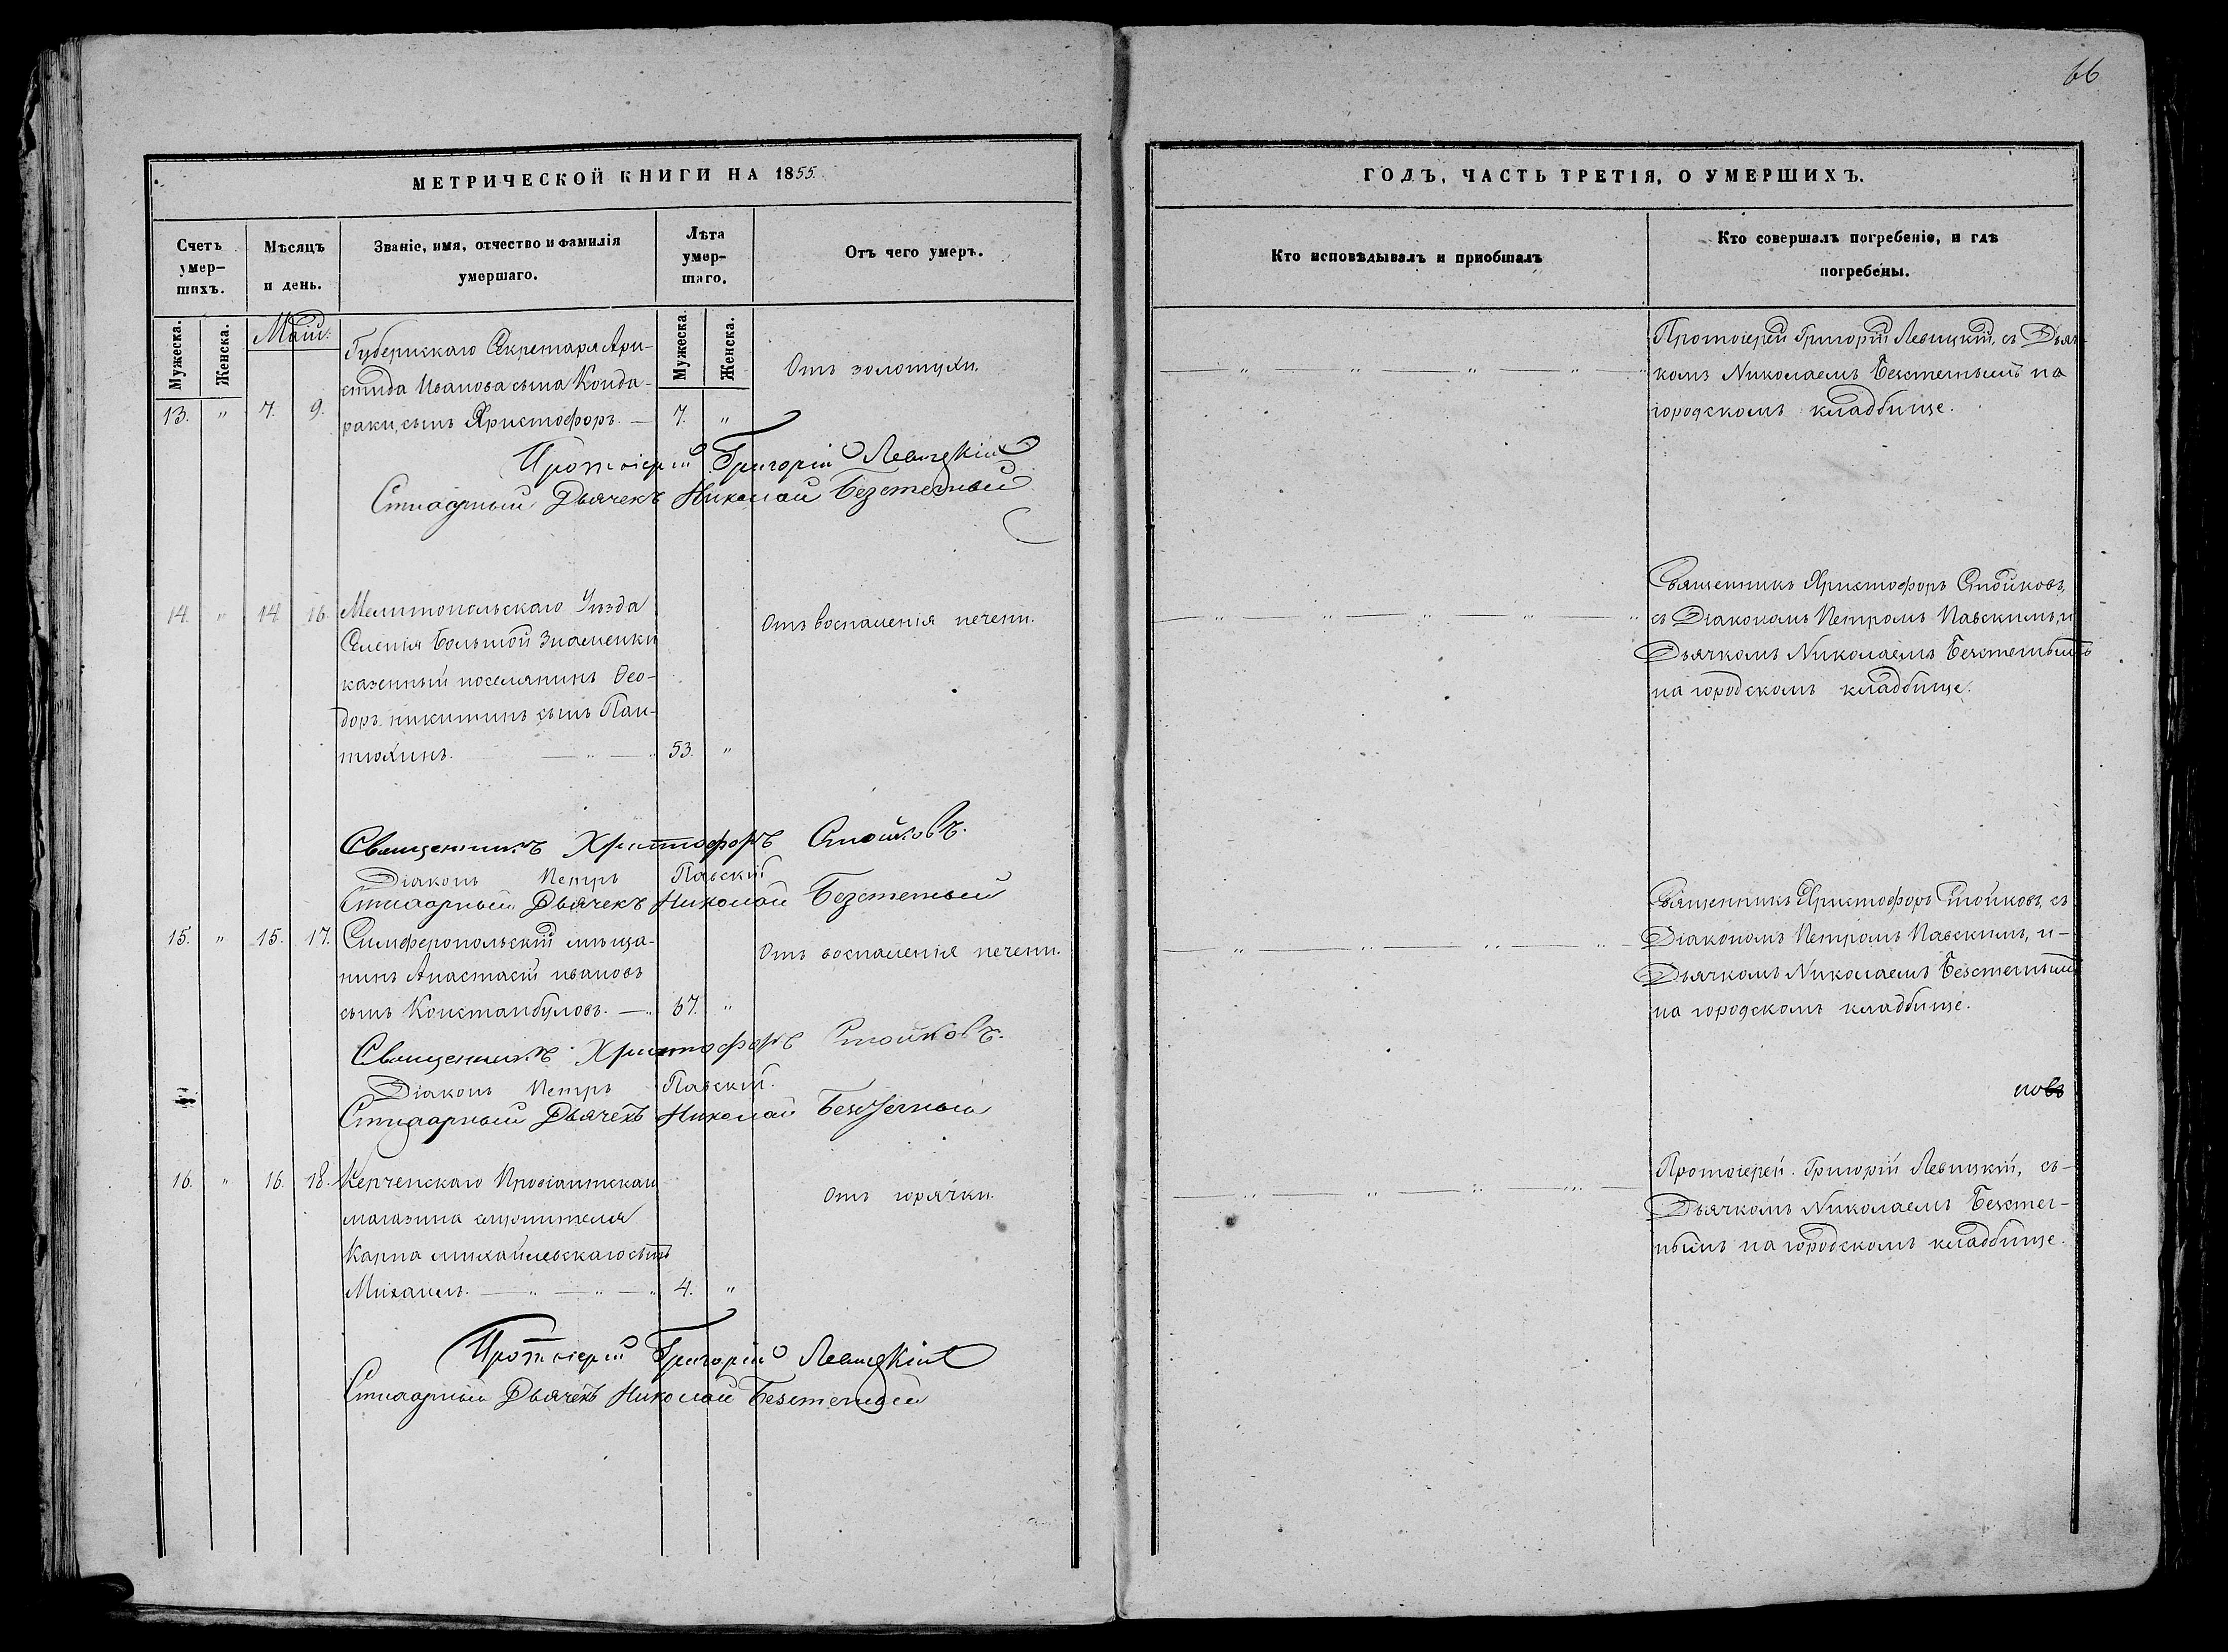 66
МЕТРИЧЕСКОЙ КНИГИ НА 1855.
Счетъ умер-
шихъ.
Мѣсяцъ
и день.
Званіе, имя, отчество и фамилія
умершаго.
Лѣта
умер-
шаго.
Отъ чего умеръ.
Мужеска.
Женска.
Маій.
Мужеска.
Женска.
13. " 7. 9.
Губернскаго Секретаря Ари-
стида Иванова сына Конда-
раки, сынъ Христофоръ. — 7. "
Отъ золотухи.
Протоіерей Григорій Левицкій
Стихарный Дьячекъ Николай Безстетный
14. " 14. 16.
Мелитопольскаго Уѣзда
Селенія Большой Знаменки
казенный поселянинъ Ѳео-
доръ никитинъ сынъ Пан-
тюхинъ. — " — " 53. "
Отъ воспаленія печени.
Священникъ Христофоръ Стойковъ.
Діаконъ Петръ Павскій
Стихарный Дьячекъ Николай Безстетный
15. " 15. 17.
Симферопольскій мѣща-
нинъ Анастасій ивановъ
сынъ Констанбуловъ. — " 67. "
Отъ воспаленія печени.
Священникъ Христофоръ Стойковъ.
Діаконъ Петръ Павскій.
Стихарный Дьячекъ Николай Безстетный
16. " 16. 18.
Керченскаго Провіантскаго
магазина смотрителя
Карпа михайлевскаго сынъ
Михаилъ. — " — " — " 4. "
Отъ горячки.
Протоіерей Григорій Левицкій
Стихарный Дьячекъ Николай Безстетный
ГОДЪ, ЧАСТЬ ТРЕТІЯ, О УМЕРШИХЪ.
Кто исповѣдывалъ и приобщалъ
Кто совершалъ погребеніе, и гдѣ
погребены.
Протоіерей Григорій Левицкій, съ Дьяч-
комъ Николаемъ Безстетнымъ на
городскомъ кладбище.
Священникъ Христофоръ Стойковъ,
съ Діакономъ Петромъ Павскимъ, и
Дьячкомъ Николаемъ Безстетнымъ
на городскомъ кладбище.
Священникъ Христофоръ Стойковъ, съ
Діакономъ Петромъ Павскимъ, и-
Дьячкомъ Николаемъ Безстетнымъ
на городскомъ кладбище.
Протоіерей Григорій Левицкій, съ-
Дьячкомъ Николаемъ Безстет-
нымъ на городскомъ кладбище.